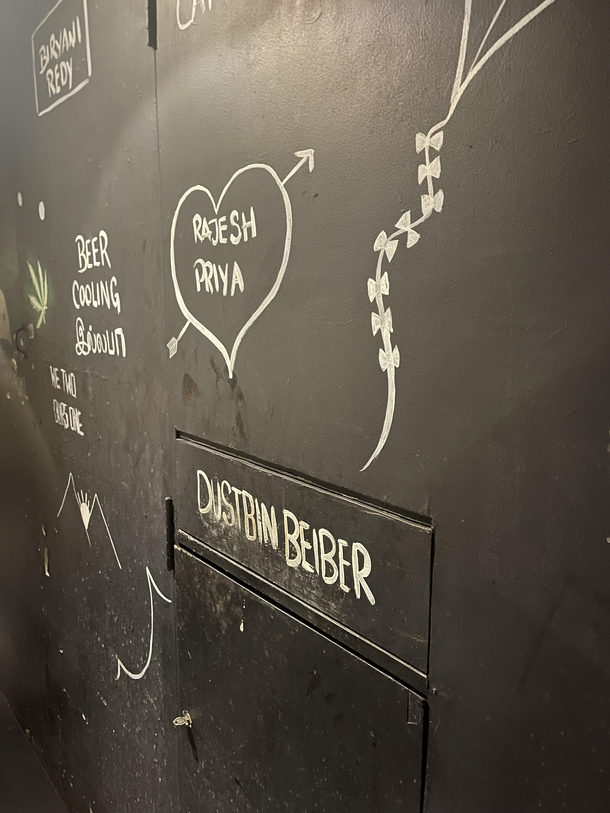 BIRYANI
REDY
RAJESH
PRIYA
BEER
COOLING
இல்லயா
WE TWO
OURS ONE
DUSTBIN BEIBER